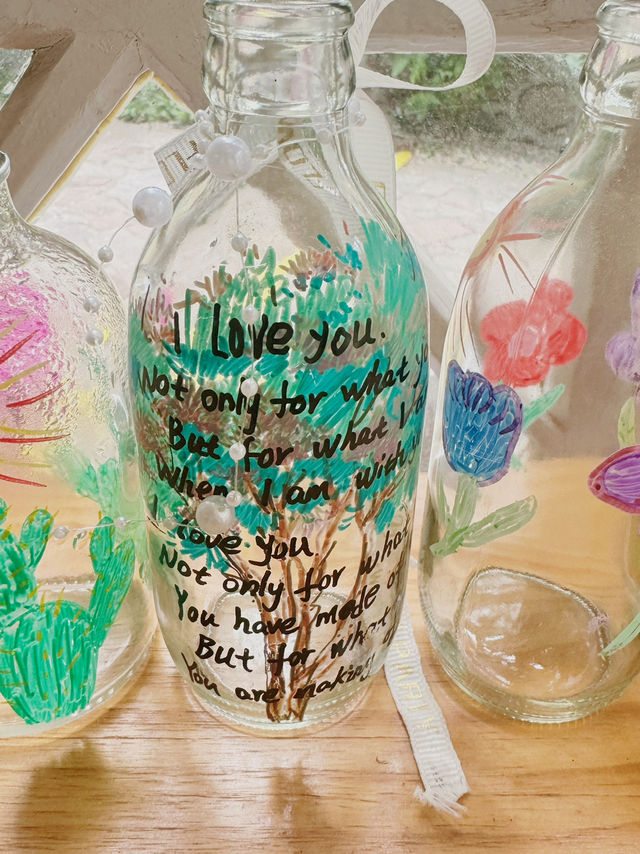 I Love you.
Not only for what
But for what I
When I am with
I love you.
Not only for what
You have made
But for what
You are making